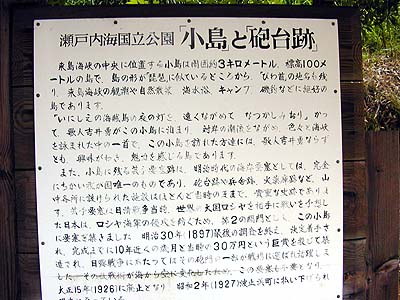 瀬戸内海国立公園「小島と砲台跡」
来島海峡の中央に位置する小島は周囲約3キロメートル、標高100メ
ートルの島で、島の形が「琵琶」に似ているところから、「びわ首」の地名も残
り、来島海峡の観潮や自然散策 海水浴、キャンプ 磯釣などに絶好の
島であります。
「いにしえの海賊島の夜の灯を 遠くながめて なつかしみおり」かつ
て、歌人吉井勇がこの小島に泊まり 対岸の潮流をながめ、色々と海峡
を詠まれた中の一首で、この小島を訪れた方達には、歌人吉井勇ならず
とも、興味がわき、魅力を感じる島であります。
また、小島に残る芸予要塞は、明治時代の海岸要塞としては、完全
にちかい我が国唯一のものであり、砲台跡や兵舎跡、火薬庫跡など、山
中各所に設けられた施設はほとんど当時のままで、貴重な史跡でありま
す。芸予要塞は日清戦争当時、世界の大国ロシヤを相手に戦いを予想し
た日本は、ロシヤ海軍の侵入を防ぐため、第2の関門とし、この小島
に要塞を築きました。明治30年(1897)築造の調査を終え、決定着手さ
れ、完成までに10年近くの歳月と当時の30万円という巨費を投じて築
造され、日露戦争にあたってはその砲門の一台が戦場に運ばれ活躍しま
した。その後戦術が海から空に変化したため、この要塞も不要となり、
大正15年(1926)に廃止となり 昭和2年(1927)波止浜町に払い下げられ